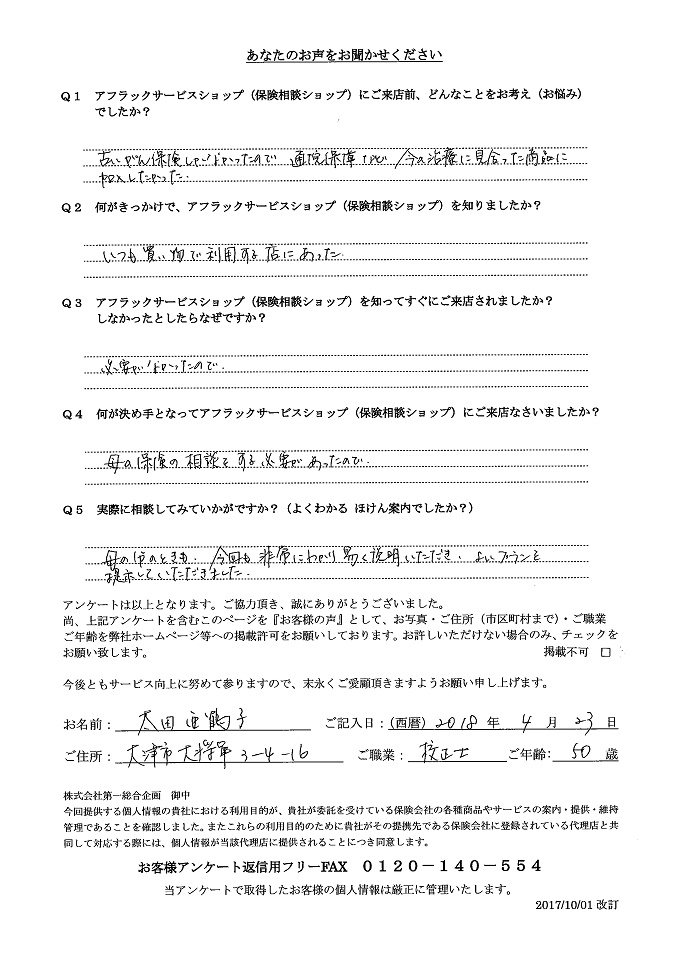 あなたのお声をお聞かせください
Q1 アフラックサービスショップ（保険相談ショップ）にご来店前、どんなことをお考え（お悩み）
でしたか？
古いがん保険しかなかったので 通院保障など 今の治療に見合った商品に
加入したかった.
Q2 何がきっかけで、アフラックサービスショップ（保険相談ショップ）を知りましたか？
いつも買い物で利用する店にあった.
Q3 アフラックサービスショップ（保険相談ショップ）を知ってすぐにご来店されましたか？
しなかったとしたらなぜですか？
必要がなかったので.
Q4 何が決め手となってアフラックサービスショップ（保険相談ショップ）にご来店なさいましたか？
母の保険の相談をする必要があったので.
Q5 実際に相談してみていかがですか？（よくわかる ほけん案内でしたか？）
母のときも、今回も非常にわかり易く説明いただき、よいプランを
提示していただきました.
アンケートは以上となります。ご協力頂き、誠にありがとうございました。
尚、上記アンケートを含むこのページを『お客様の声』として、お写真・ご住所（市区町村まで）・ご職業
ご年齢を弊社ホームページ等への掲載許可をお願いしております。お許しいただけない場合のみ、チェックを
お願い致します。 掲載不可 □
今後ともサービス向上に努めて参りますので、末永くご愛顧頂きますようお願い申し上げます。
お名前： 太田 亜鶴子 ご記入日：（西暦）2018 年 4 月 23 日
ご住所： 大津市大将軍 3-4-16 ご職業： 校正士 ご年齢： 50 歳
株式会社第一総合企画 御中
今回提供する個人情報の貴社における利用目的が、貴社が委託を受けている保険会社の各種商品やサービスの案内・提供・維持
管理であることを確認しました。またこれらの利用目的のために貴社がその提携先である保険会社に登録されている代理店と共
同して対応する際には、個人情報が当該代理店に提供されることにつき同意します。
お客様アンケート返信用フリーFAX 0120－140－554
当アンケートで取得したお客様の個人情報は厳正に管理いたします。
2017/10/01 改訂